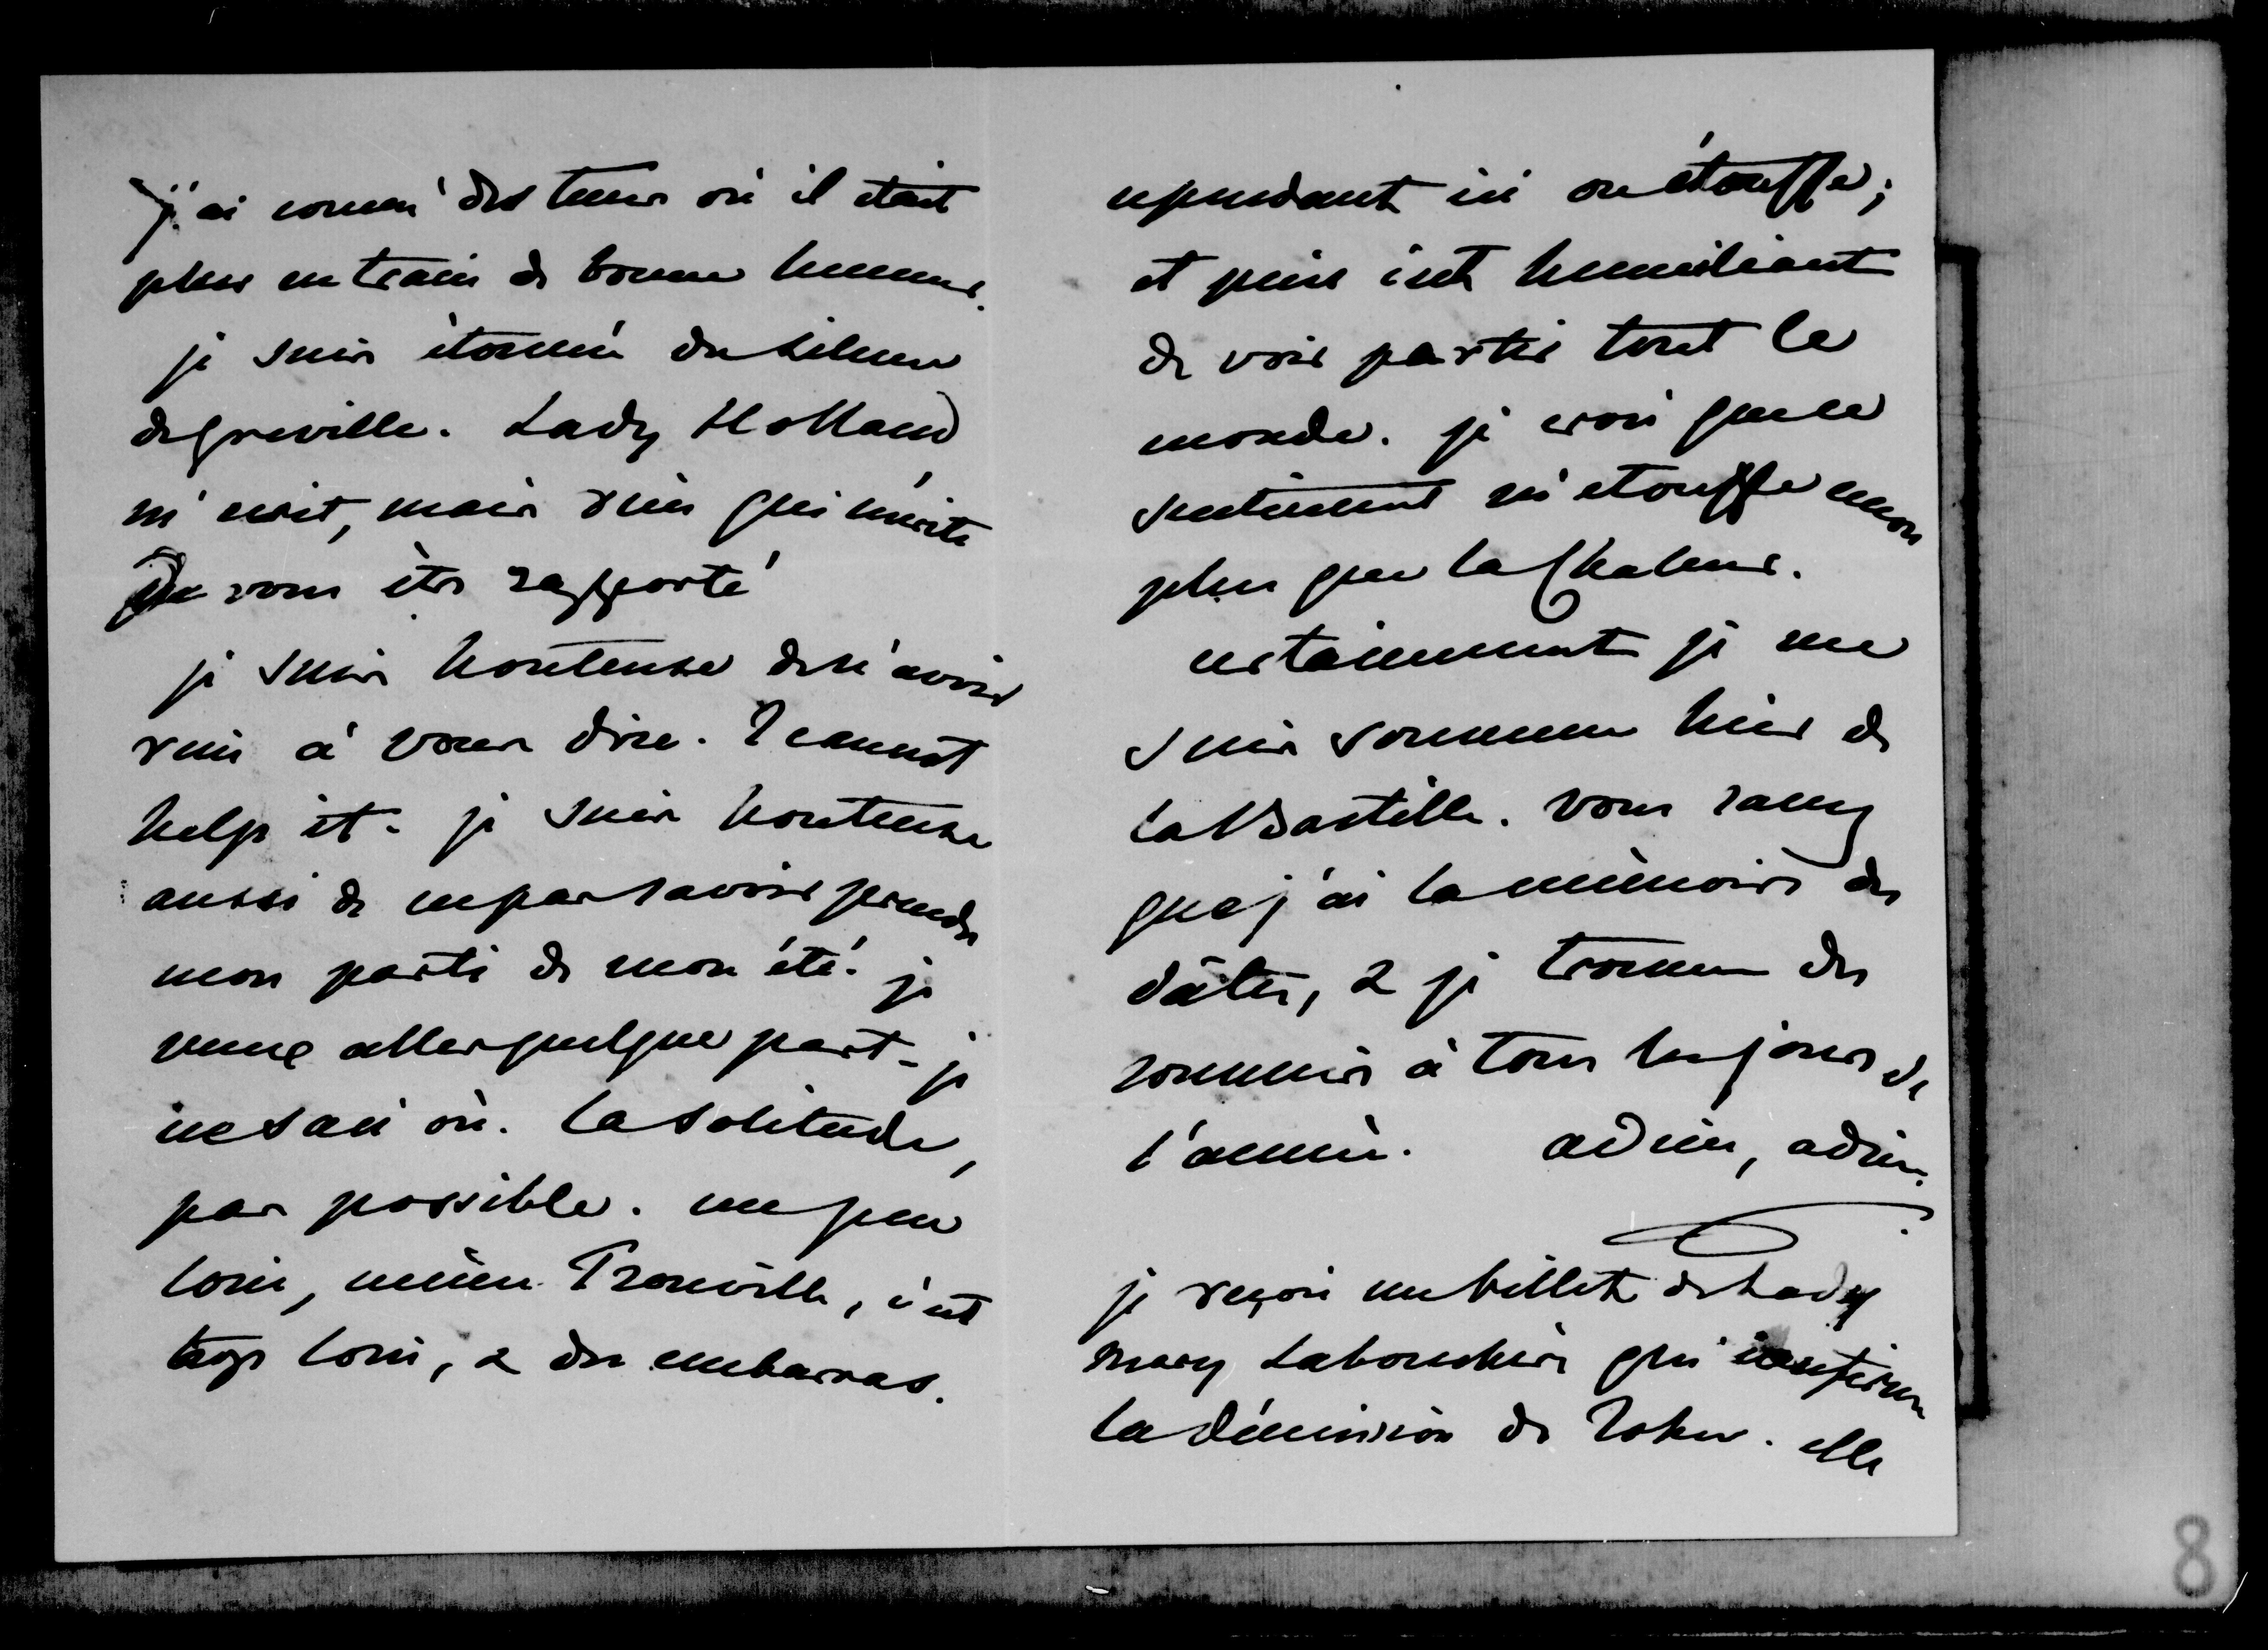 j'ai connu des tems où il était
plus en train de bonne humeur.
je suis étonnée du silence
de greville. Lady Holland
m'écrit, mais rien qui mérite
de vous être rapporté
je suis honteuse de n'avoir
rien à vous dire. I cannot
help it. je suis honteuse
aussi de ne pas savoir prendre
mon parti de mon été. je
veux aller quelque part - je
ne sais où. la solitude,
pas possible. un peu
loin, même Trouville, c'est
trop loin, & des embarras.
cependant ici on étouffe;
et puis c'est humiliant
de voir partir tout le
monde. je crois que ce
sentiment m'étouffe encore
plus que la chaleur.
certainement je me
suis souvenue hier de
la Bastille. vous savez
que j'ai la mémoire des
dates, & je trouve des
souvenirs à tous les jours de
l'année. adieu, adieu.
je reçois un billet de Lady
Mary Labouchère qui confirme
la démission de Roku. elle
8